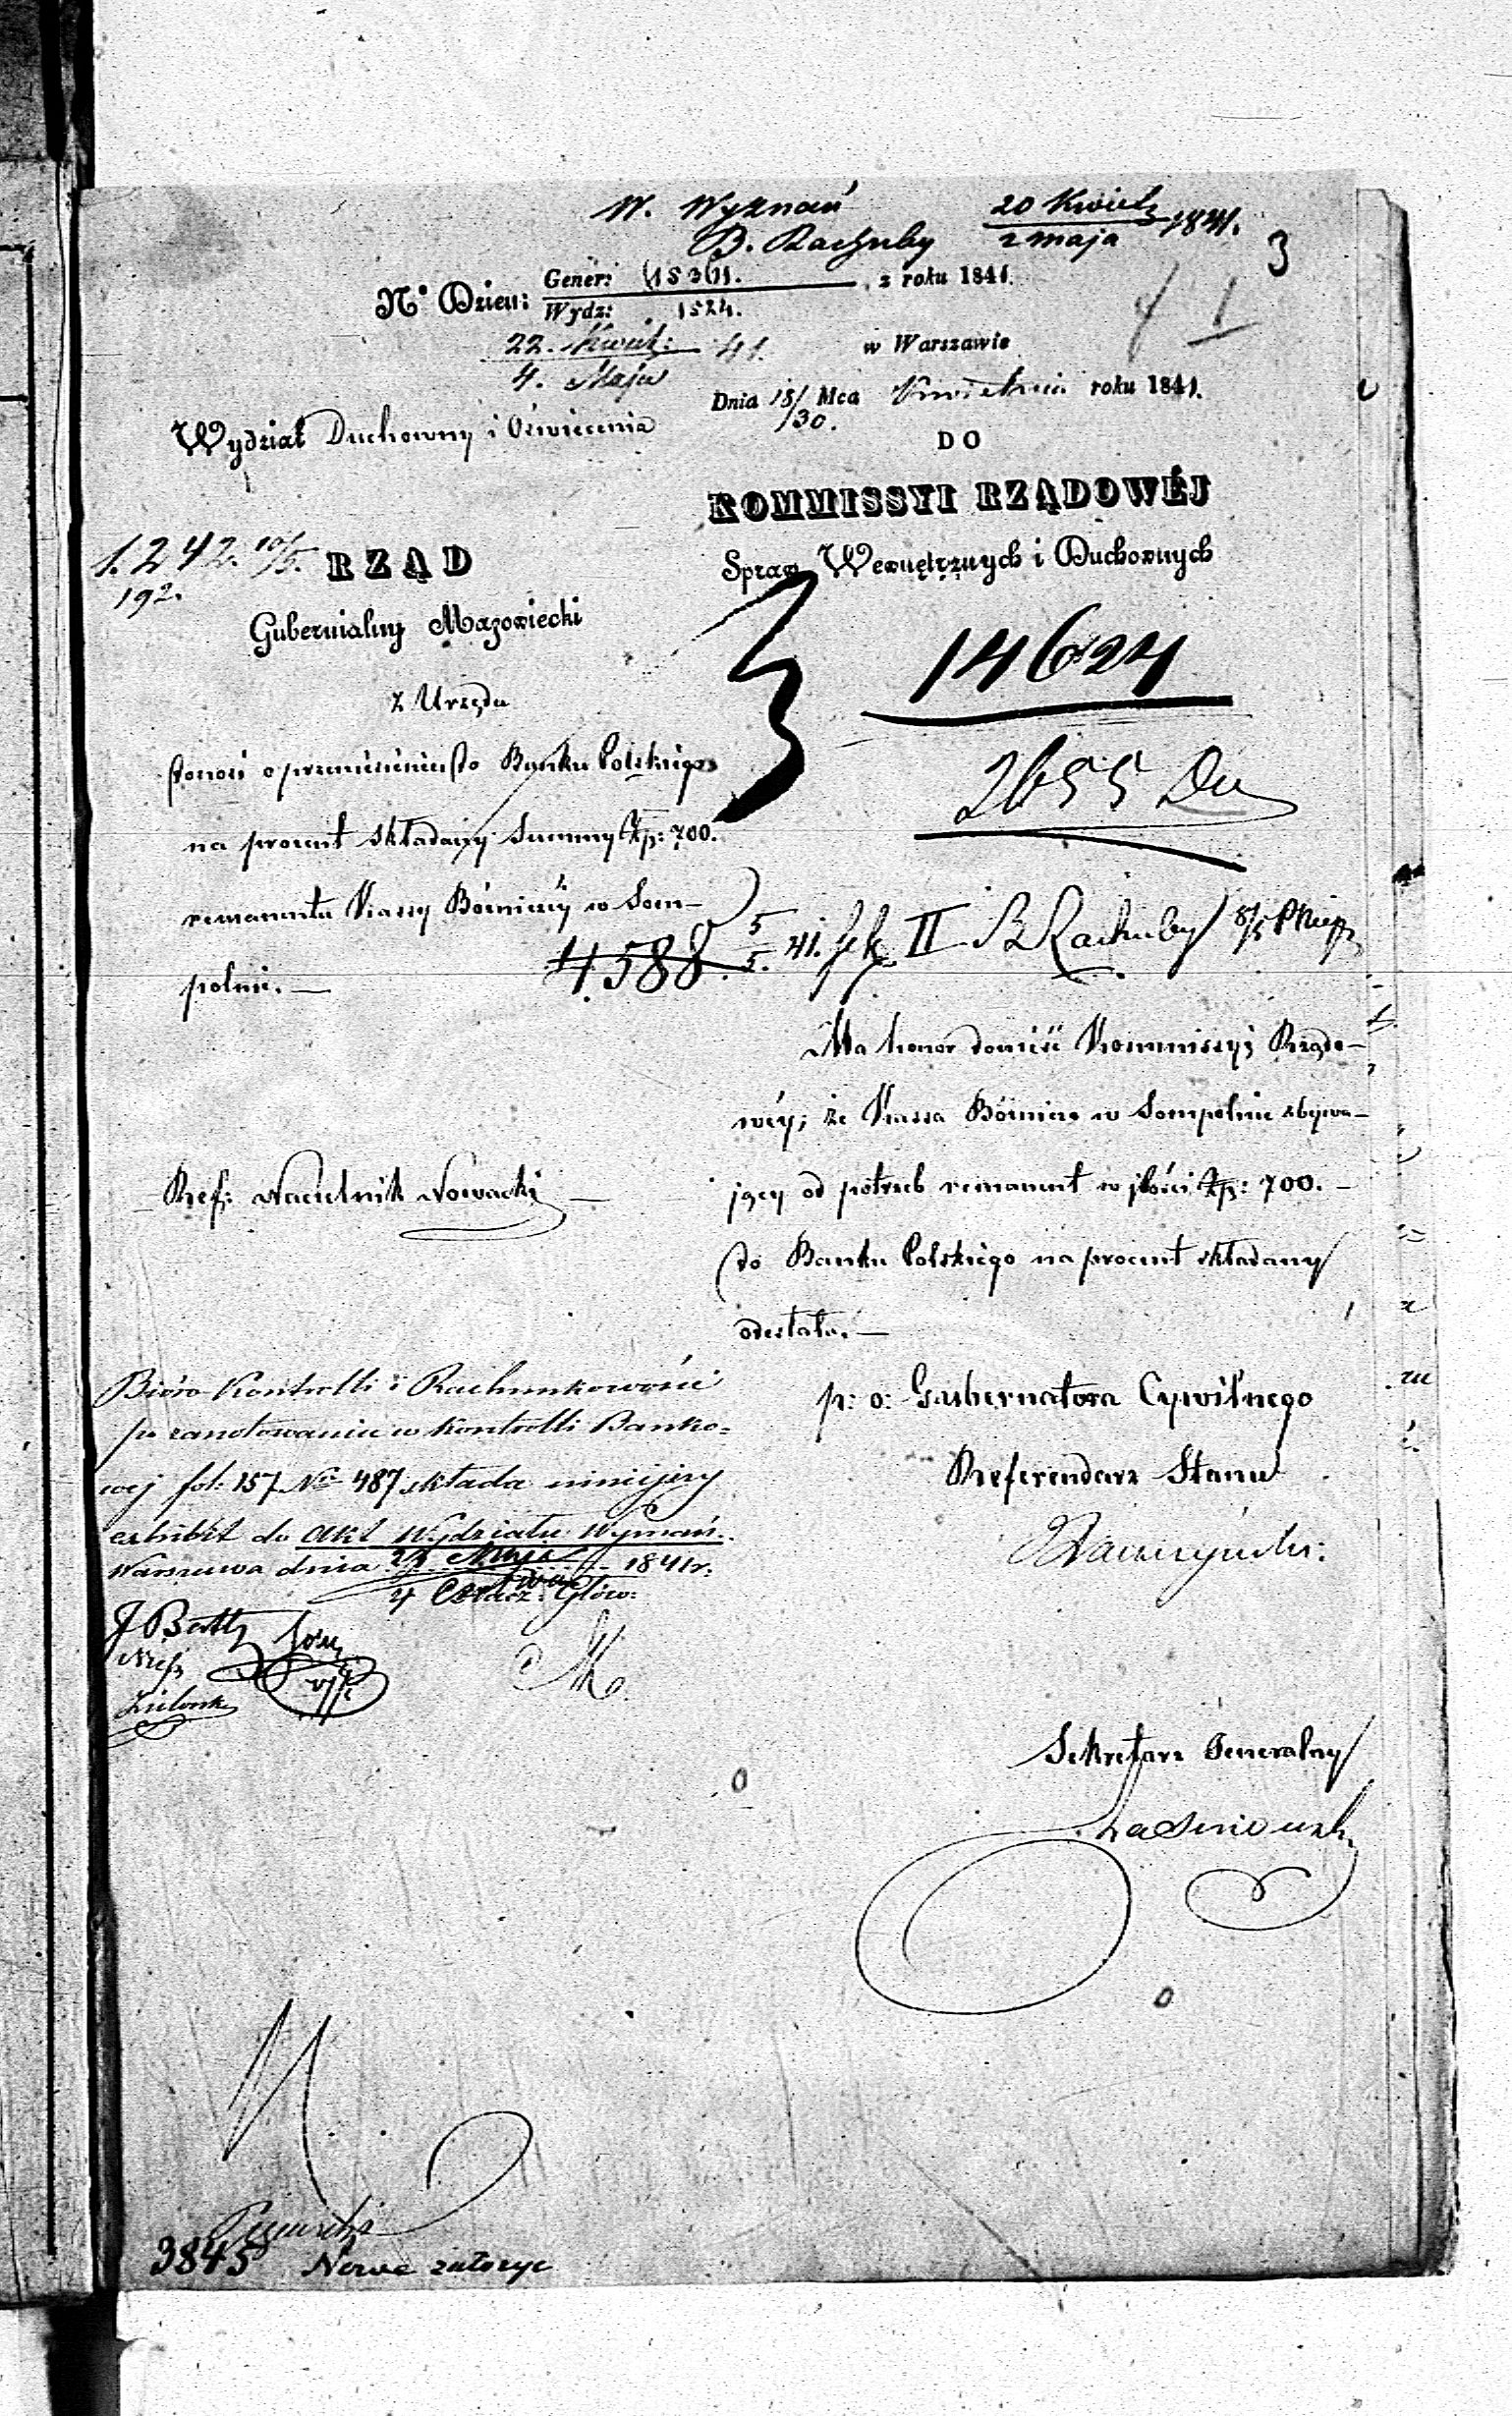 W. Wyznań
B. Rachuby
20 Kwiet
2 maja 1841.
3
No Dzien: Gener: 15361. z roku 1841.
Wydz: 1524.
22. Kwiet: 41.
4. Maja
w Warszawie
Dnia 18/30. Mca Kwietnia roku 1841.
Wydział Duchowny i Oświecenia
DO
KOMMISSYI RZĄDOWÉJ
Spraw Wewnętrznych i Duchownych
1.242. 10/5.
192.
RZĄD
Gubernialny Mazowiecki
14624
2655 Du
z Urzędu
donosi o przeniesieniu do Banku Polskiego
na procent składany Summy Zp: 700.
remanentu Kassy Bóżniczéy w Som-
polnie. —
4588. 5/5. 41. II B Rachuby 8/5
Ma honor donieść Kommissyi Rządo-
wéy; że Kassa Bóżnicza w Sompolnie zbywa-
jący od potrzeb remanent w ilości Zp: 700. —
do Banku Polskiego na procent składany
odesłała. —
Ref: Naczelnik Nowacki —
p: o: Gubernatora Cywilnego
Referendarz Stanu
Bióro Kontrolli i Rachunkowości
po zanotowaniu w kontrolli Banko=
wej fol: 157 No 487 składa niniejszy
exhibit do akt Wydziału Wyznań.
Warszawa dnia Maja 1841 r:
J Bertt
M.
Sekretarz Generalny
3845 Nowe założyć